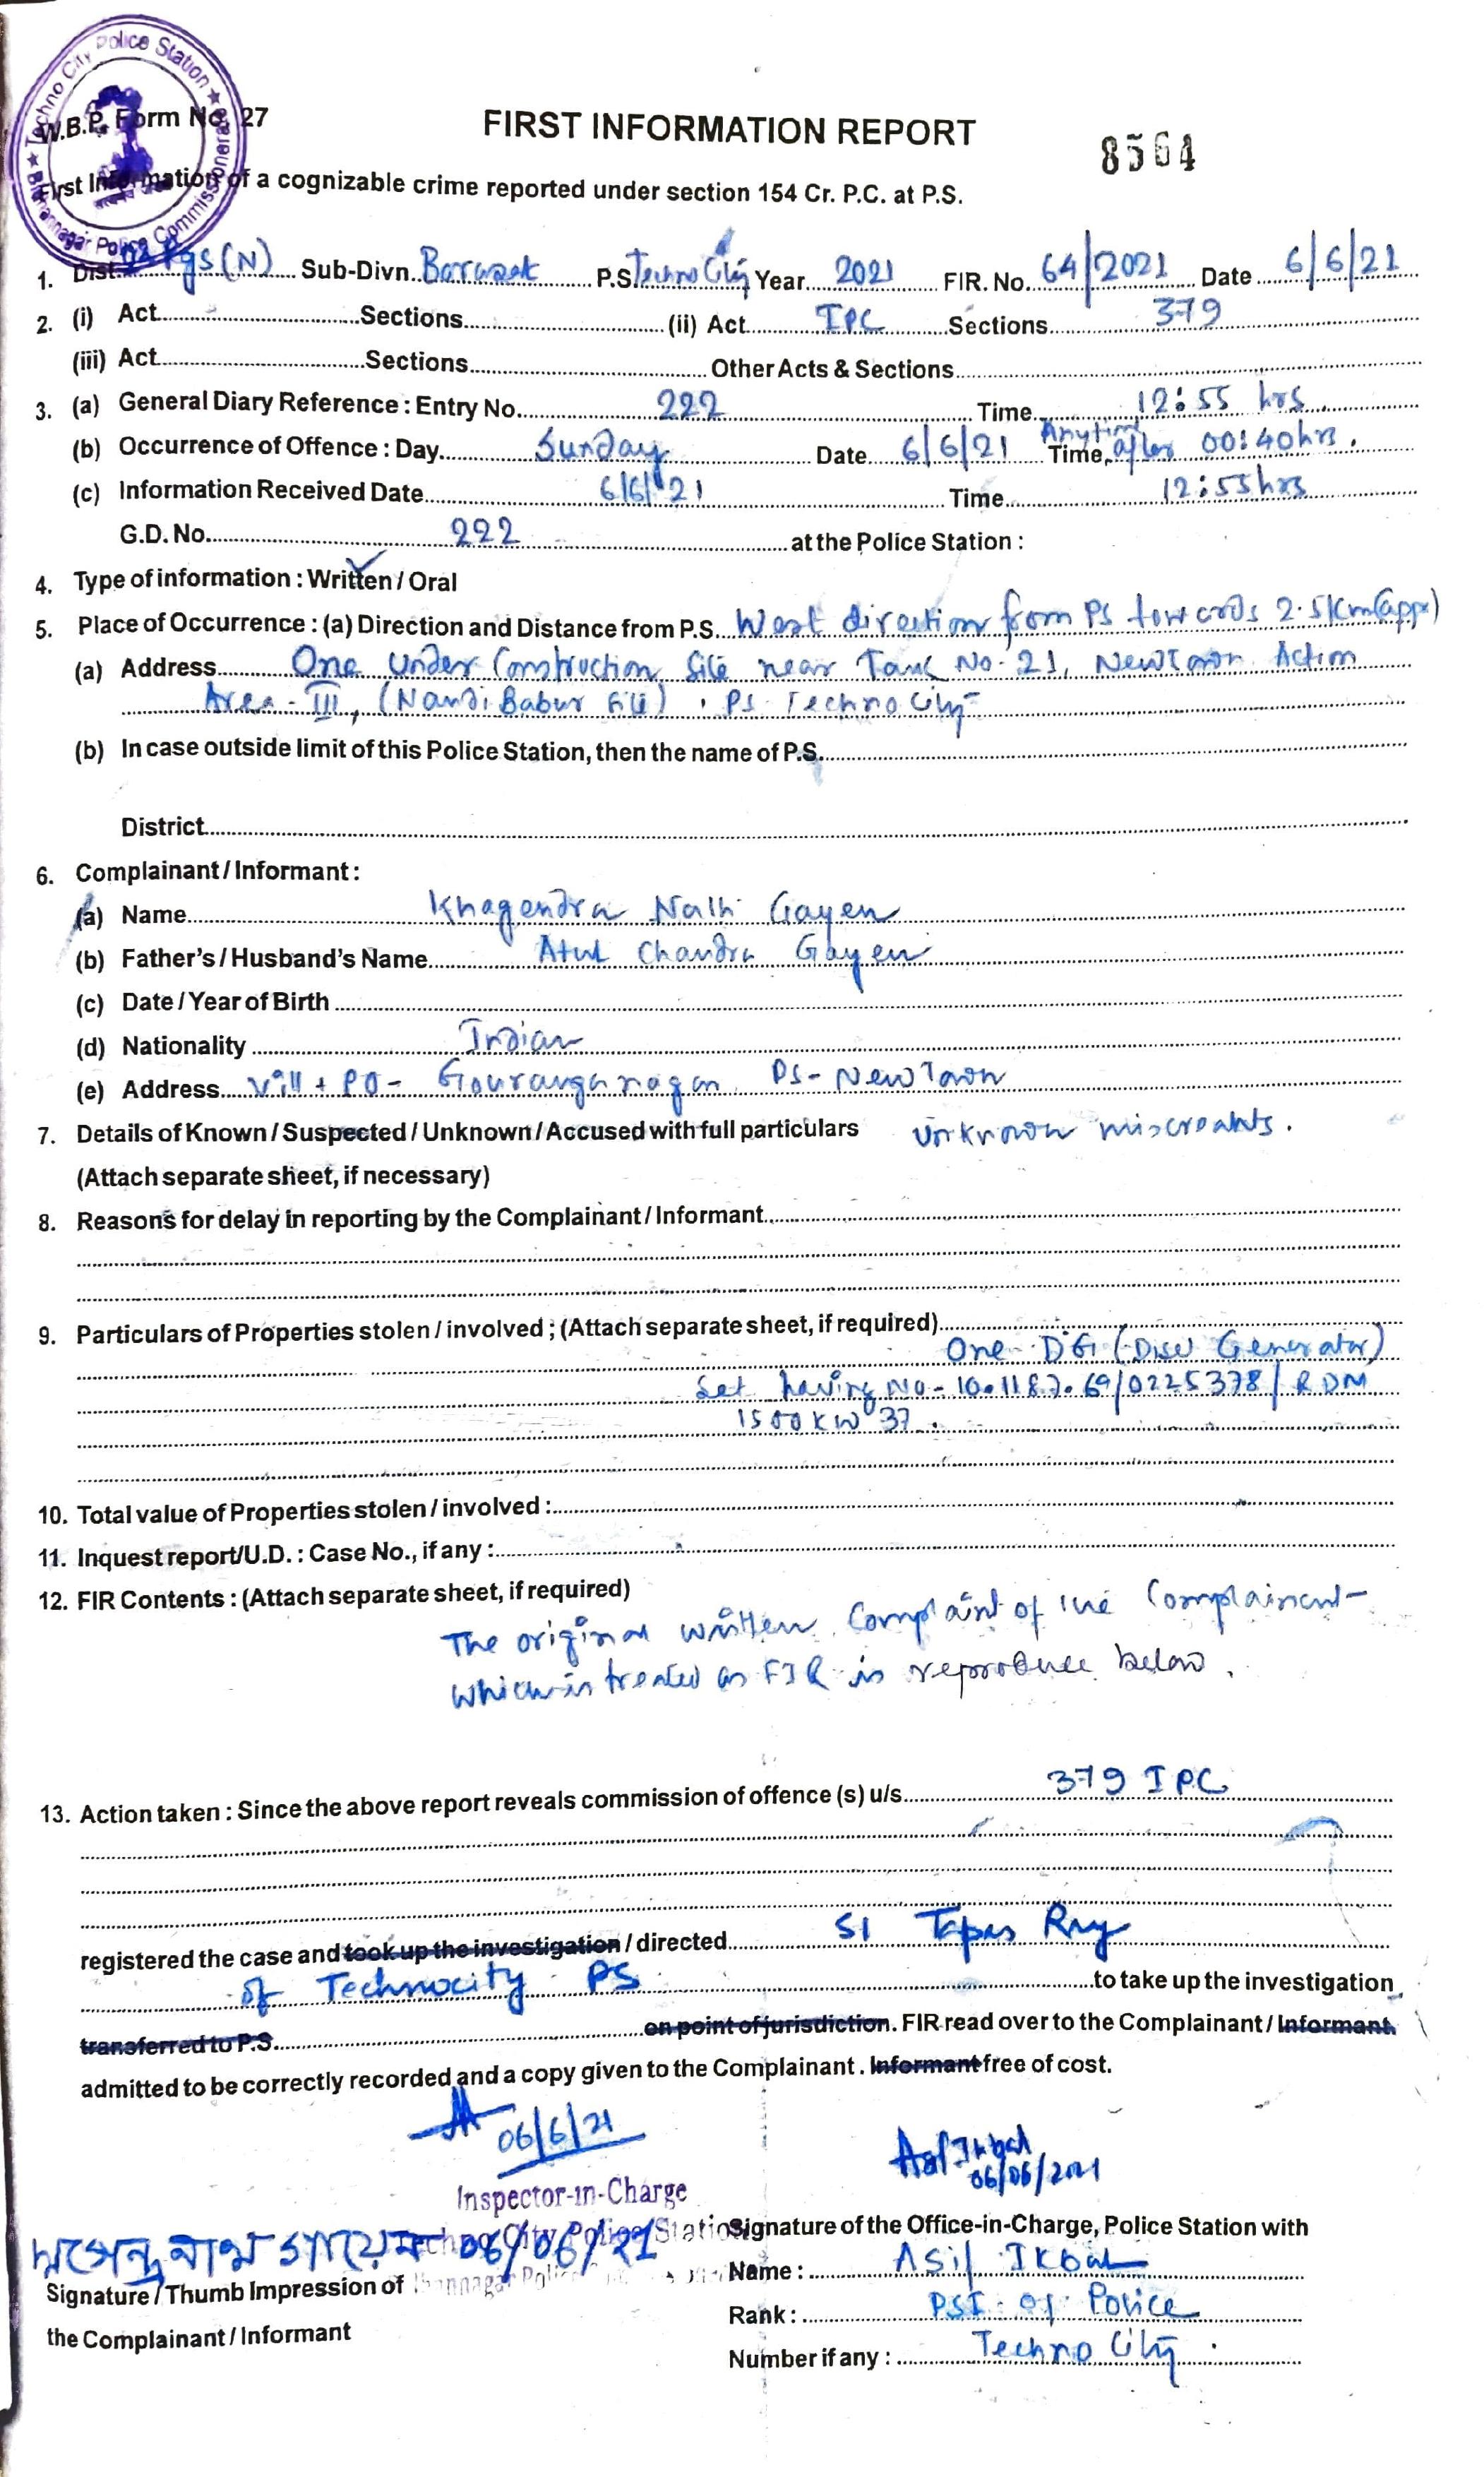 Techno City Police Station ★ Bidhannagar Police Commissionerate ★
W.B.P. Form No. 27
FIRST INFORMATION REPORT
8564
First Information of a cognizable crime reported under section 154 Cr. P.C. at P.S.
1. Dist. Pgs (N) Sub-Divn. Barasat P.S. Techno City Year 2021 FIR. No. 64/2021 Date 6/6/21
2. (i) Act Sections (ii) Act IPC Sections 379
(iii) Act Sections Other Acts & Sections
3. (a) General Diary Reference : Entry No. 222 Time 12:55 hrs
(b) Occurrence of Offence : Day Sunday Date 6/6/21 Time Anytime after 00:40hrs.
(c) Information Received Date 6/6/21 Time 12:55hrs
G.D. No. 222 at the Police Station :
4. Type of information : Written / Oral
5. Place of Occurrence : (a) Direction and Distance from P.S. West direction from PS towards 2.5Km(appx)
(a) Address One Under Construction Site near Tank No-21, NewTown Action
Area-III, (Nandi Babur ) . PS Techno City
(b) In case outside limit of this Police Station, then the name of P.S.
District
6. Complainant / Informant :
(a) Name Khagendra Nath Gayen
(b) Father's / Husband's Name Atul Chandra Gayen
(c) Date / Year of Birth
(d) Nationality Indian
(e) Address Vill + PO- Gouranganagar PS- NewTown
7. Details of Known / Suspected / Unknown / Accused with full particulars Unknown miscreants.
(Attach separate sheet, if necessary)
8. Reasons for delay in reporting by the Complainant / Informant
9. Particulars of Properties stolen / involved ; (Attach separate sheet, if required)
One DG (Disel Generator)
Set having No- 10.1187.69/0225378/RDM
1500KW 37.
10. Total value of Properties stolen / involved :
11. Inquest report/U.D. : Case No., if any :
12. FIR Contents : (Attach separate sheet, if required)
The original written Complaint of the Complainant
which is treated as FIR is reproduce below.
13. Action taken : Since the above report reveals commission of offence (s) u/s 379 IPC
registered the case and took up the investigation / directed SI Tapas Roy
of Technocity PS to take up the investigation
transferred to P.S. on point of jurisdiction. FIR read over to the Complainant / Informant
admitted to be correctly recorded and a copy given to the Complainant . Informant free of cost.
06/6/21
Asif Ikbal
06/06/2021
Inspector-in-Charge
Techno City Police Station
খগেন্দ্র নাথ গায়েন 06/06/21
Signature of the Office-in-Charge, Police Station with
Signature / Thumb Impression of
the Complainant / Informant
Name : Asif Ikbal
Rank : PSI of Police
Number if any : Techno City